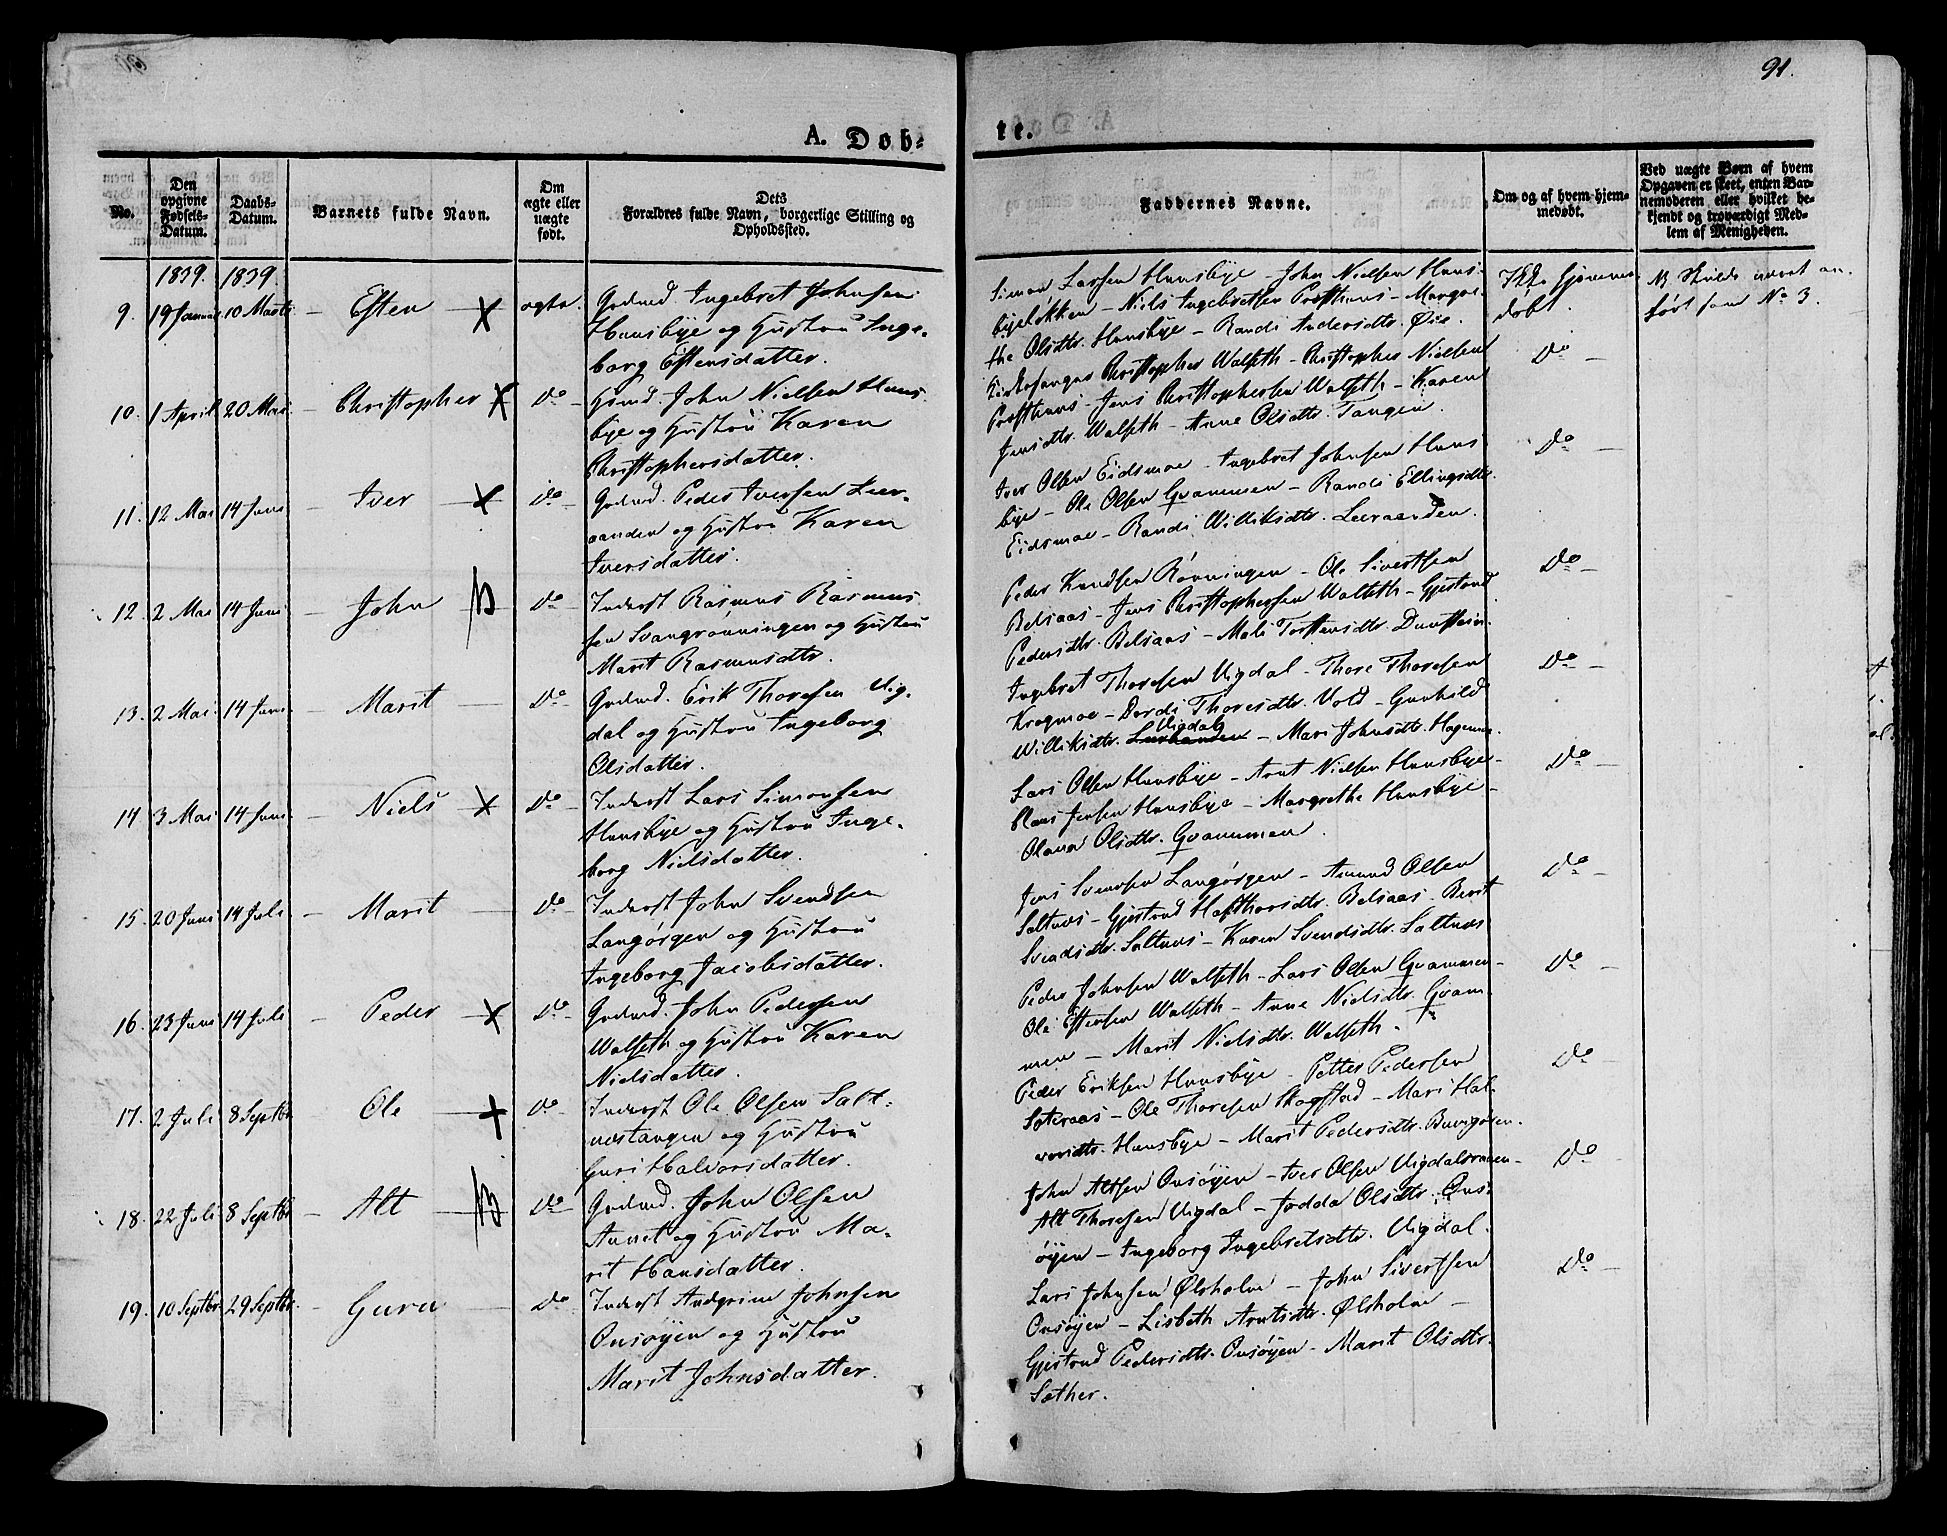 91.
A. Døb-
te.
No.
Den opgivne Fødsels-Datum.
Daabs-Datum.
Barnets fulde Navn.
Om ægte eller uægte født.
Dets Forældres fulde Navn, borgerlige Stilling og Opholdssted.
Faddernes Navne.
Om og af hvem hjem-medøbt.
Ved uægte Børn af hvem Opgaven er skeet, enten Bar-nemoderen eller hvilket be-kjendt og troværdigt Med-lem af Menigheden.
1839. 1839.
9. 19 Januar 10 Marts – Esten – ægte.
Gaardmd. Ingebret Johnsen
Hansbye og Hustru Inge-
borg Estensdatter.
Simon Larsen Hansbye – John Nielsen Hans-
byeløkken – Niels Ingebretsen Posthuus – Margre-
the Olsdtr. Hansbye – Randi Andersdtr. Øie.
Ikke hjemme-
døbt.
NB Skulde været an-
ført som No 3.
10. 1 April 20 Mai – Christopher – Do –
Huusmd. John Nielsen Hans-
bye og Hustru Karen
Christophersdatter.
Kirkesanger Christopher Walseth – Christopher Nielsen
Posthuus – Jens Christophersen Walseth – Karen
Jensdtr. Walseth – Anne Olsdtr. Tangen.
Do –
11. 12 Mai 14 Juni – Iver – Do –
Gaardmd. Peder Iversen Leer-
aanden og Hustru Karen
Iversdatter.
Iver Olsen Eidsmoe – Ingebret Johnsen Hans-
bye – Ole Olsen Gvammen – Randi Ellingsdtr.
Eidsmoe – Randi Williksdtr. Leeraanden.
Do –
12. 2 Mai 14 Juni – John – Do –
Inderst Rasmus Rasmus-
sen Svangrønningen og Hustru
Marit Rasmusdtr.
Peder Knudsen Rønningen – Ole Sivertsen
Belsaas – Jens Christophersen Walseth – Gjertrud
Pedersdtr. Belsaas – Mali Torstensdtr. Duustein.
Do –
13. 2 Mai 14 Juni – Marit – Do –
Gaardmd. Erik Thoresen Vig-
dal og Hustru Ingeborg
Olsdatter.
Ingebret Thoresen Vigdal – Thore Thoresen
Krogmoe – Dordi Thoresdtr. Vold – Gunhild
Williksdtr. Vigdal – Mari Johnsdtr. Hagen.
Do –
14 3 Mai 14 Juni – Niels – Do –
Inderst Lars Simonsen
Hansbye og Hustru Inge-
borg Nielsdatter.
Lars Olsen Hansbye – Arnt Nielsen Hansbye –
Claus Jensen Hansbye – Margrethe Hansbye –
Olava Olsdtr. Gvammen.
Do –
15. 20 Juni 14 Juli – Marit – Do –
Inderst John Svendsen
Langørgen og Hustru
Ingeborg Jacobsdatter.
Jens Svendsen Langørgen – Amund Olsen
Saltnes – Gjertrud Hafthorsdtr. Belsaas – Berit
Svendsdtr. Saltnes – Karen Svendsdtr. Saltnes
Do –
16. 23 Juni 14 Juli – Peder – Do –
Gaardmd. John Pedersen
Walseth og Hustru Karen
Nielsdatter.
Peder Johnsen Walseth – Lars Olsen Gvammen –
Ole Estensen Walseth – Anne Nielsdtr. Gvam-
men – Marit Nielsdtr. Walseth.
Do –
17. 2 Juli 8 Septbr – Ole – Do –
Inderst Ole Olsen Salt-
nestangen og Hustru
Guri Halvorsdatter.
Peder Eriksen Hansbye – Petter Pedersen
Søteraas – Ole Thoresen Skogstad – Mari Hal-
vorsdtr. Hansbye – Marit Pedersdtr.
Do –
18. 22 Juli 8 Septbr – Alt – Do –
Gaardmd. John Olsen
Aunet og Hustru Ma-
rit Hansdatter.
John Altsen Onsøyen – Iver Olsen
Alt Thoresen Vigdal – Jodda Olsdtr. Ons-
øyen – Ingeborg Ingebretsdtr. Vigdal.
Do –
19. 10 Septbr. 29 Septbr. – Guru – Do –
Inderst Andgrim Johnsen
Onsøyen og Hustru
Marit Johnsdatter.
Lars Johnsen Ølsholm – John Sivertsen
Onsøyen – Lisbeth Arntsdtr. Ølsholm –
Gjertrud Pedersdtr. Onsøyen – Marit Olsdtr.
Sæther.
Do –